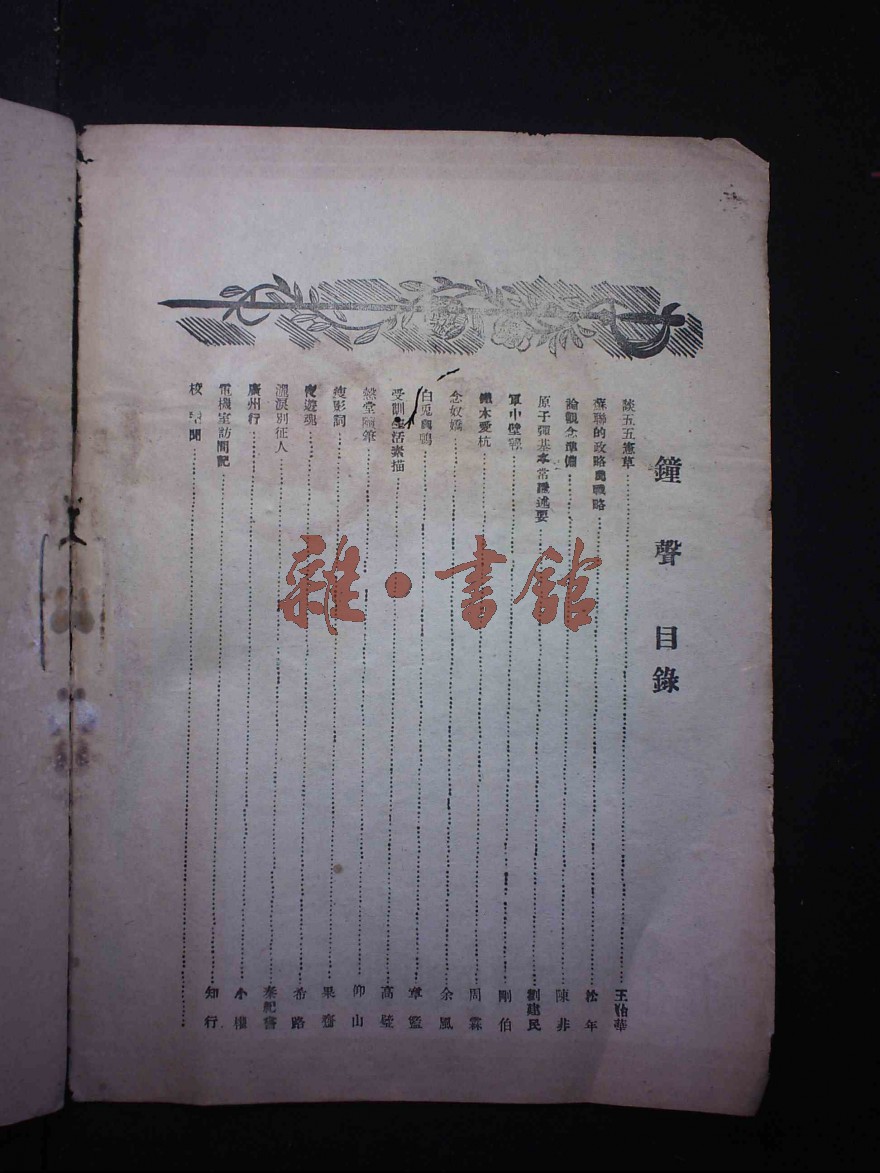 鐘聲目錄
談五五憲草 王治華
蘇聯的政略與戰略 松年
論觀念準備 陳非
原子彈基本常識述要 劉建民
軍中壁報 剛伯
木愛杭 周霖
念奴嬌 余風
白兎與鴨 章
受訓生活素描 高
堂隨筆 仰山
瘦影詞 果齋
夜遊魂 希路
灑淚別征人 秦紀
廣州行 小樓
電機室訪問記 知行
校聞
雜·書館